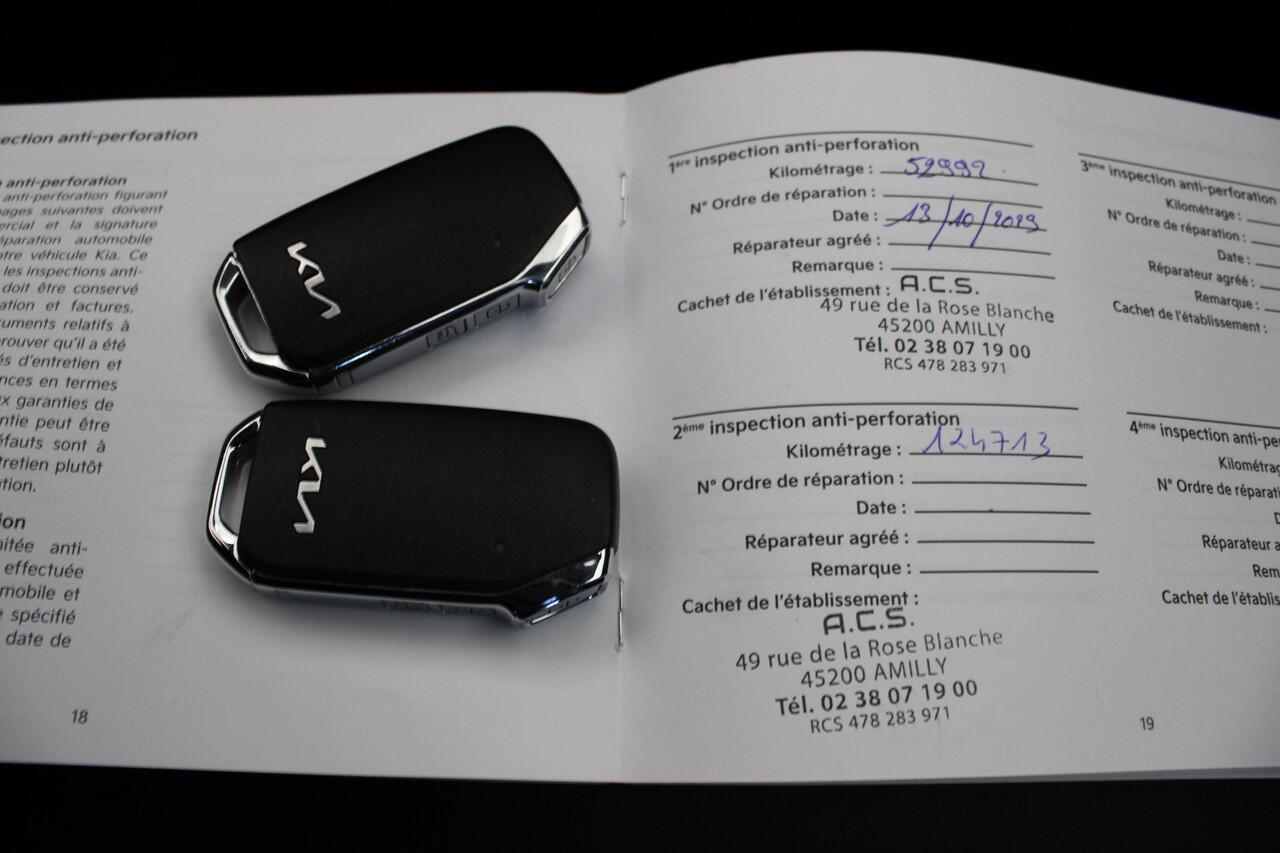 ection anti-perforation
anti-perforation
anti-perforation figurant
ages suivantes doivent
ercial et la signature
éparation automobile
otre véhicule Kia. Ce
les inspections anti-
doit être conservé
ation et factures.
uments relatifs à
rouver qu'il a été
és d'entretien et
nces en termes
x garanties de
ntie peut être
éfauts sont à
tretien plutôt
tion.
ion
itée anti-
effectuée
mobile et
spécifié
date de
18
KIA
KIA
1ère inspection anti-perforation
Kilométrage : 52992
N° Ordre de réparation :
Date : 13/10/2023
Réparateur agréé :
Remarque :
Cachet de l'établissement :
A.C.S.
49 rue de la Rose Blanche
45200 AMILLY
Tél. 02 38 07 19 00
RCS 478 283 971
2ème inspection anti-perforation
Kilométrage : 124713
N° Ordre de réparation :
Date :
Réparateur agréé :
Remarque :
Cachet de l'établissement :
A.C.S.
49 rue de la Rose Blanche
45200 AMILLY
Tél. 02 38 07 19 00
RCS 478 283 971
3ème inspection anti-perforation
Kilométrage :
N° Ordre de réparation :
Date :
Réparateur agréé :
Remarque :
Cachet de l'établissement :
4ème inspection anti-pe
Kilométrag
N° Ordre de réparati
D
Réparateur a
Rem
Cachet de l'établis
19